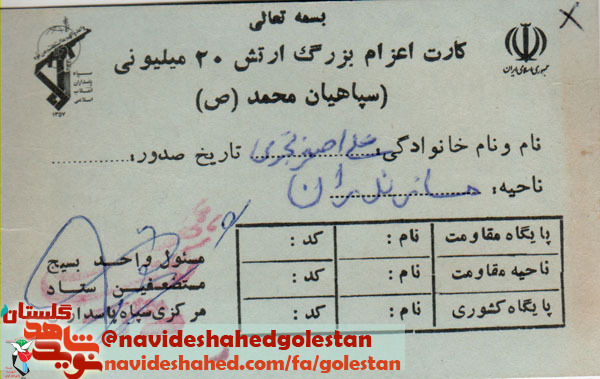 بسمه تعالی
کارت اعزام بزرگ ارتش ۲۰ میلیونی
(سپاهیان محمد (ص)
جمهوری اسلامی ایران
سپاه پاسداران انقلاب اسلامی
۱۳۵۷
نام و نام خانوادگی: علی اصغر تاریخ صدور:
ناحیه: مازندران
پایگاه مقاومت نام: کد:
ناحیه مقاومت نام: کد:
پایگاه کشوری نام: کد:
مسئول واحد بسیج
مستضعفین ستاد
مرکزی سپاه پاسدار
نوید شاهد گلستان
@navideshahedgolestan
navideshahed.com/fa/golestan